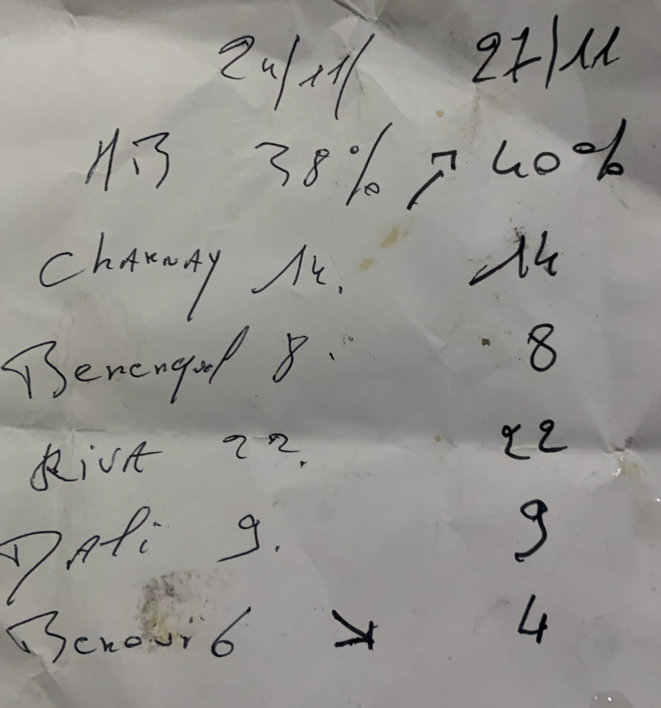 24/11/ 27/11
HB 38% ↗ 40%
CHARNAY 14. 14
Berengel 8. 8
RIVA 22. 22
DALi 9. 9
6 ↘ 4